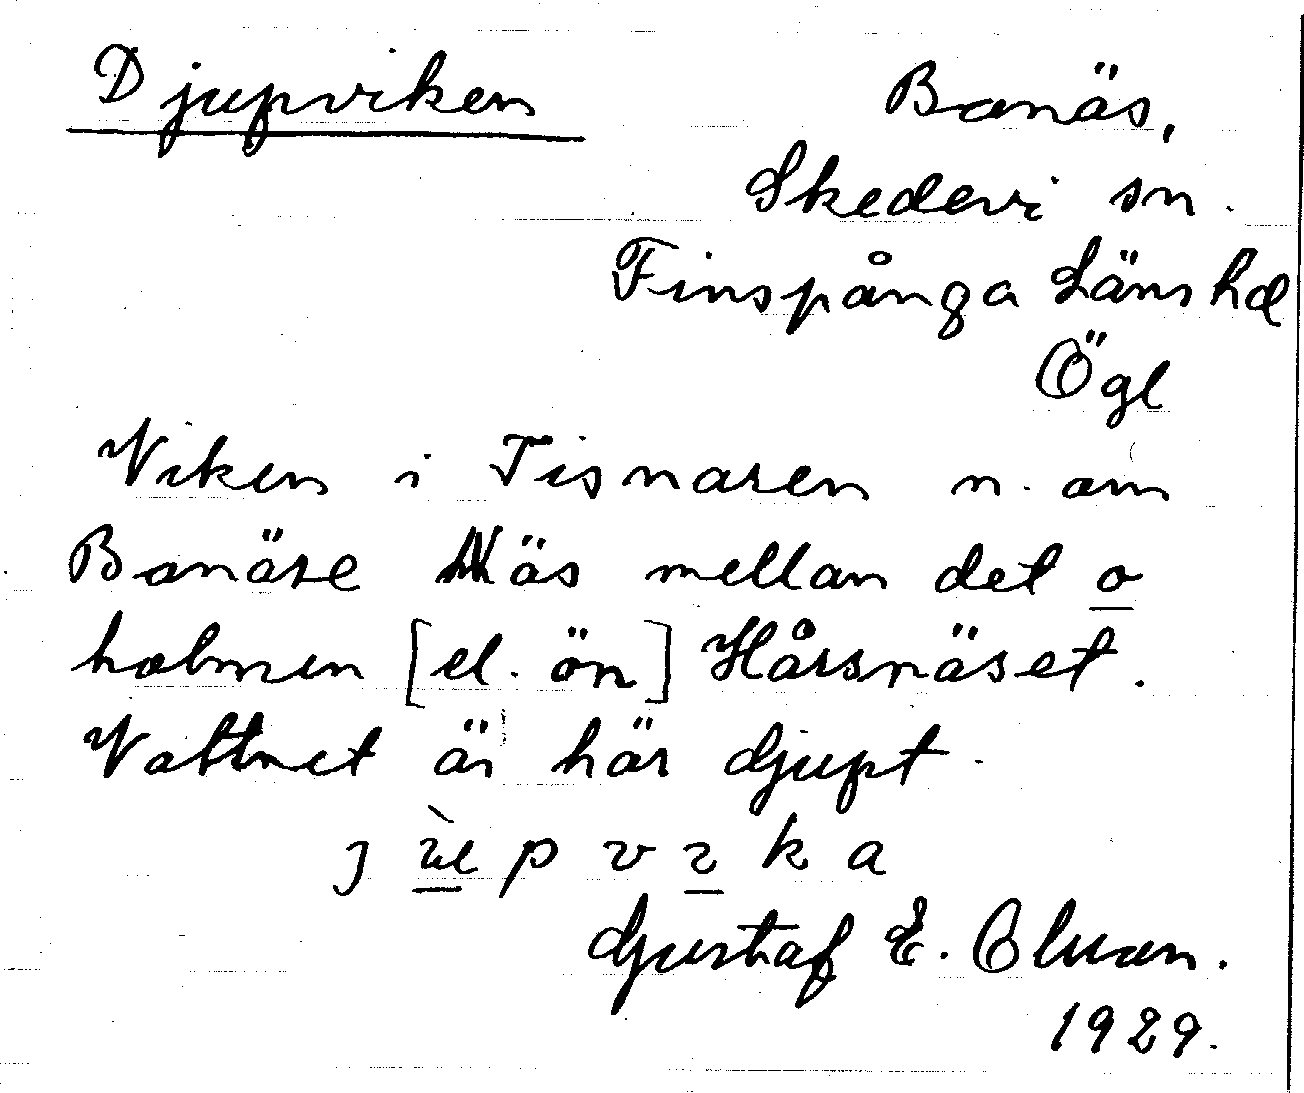 Djupviken
Banäs,
Skedevi sn.
Finspånga Läns hd
Ögl
Viken i Tisnaren n. om
Banäse Näs mellan det o
holmen [el. ön] Hårsnäset.
Vattnet är här djupt.
Gustaf E.
1929.